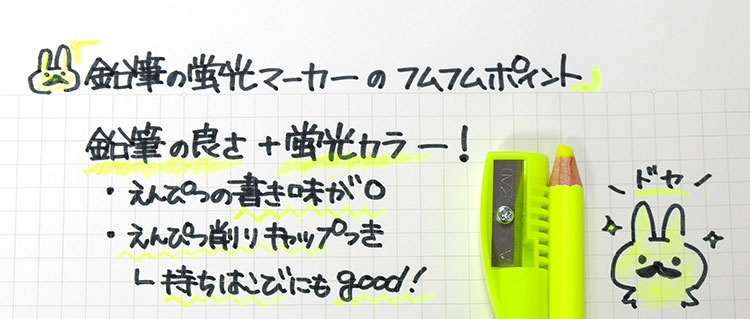 「鉛筆の蛍光マーカーのフムフムポイント」
鉛筆の良さ+蛍光カラー!
・えんぴつの書き味が○
・えんぴつ削りキャップつき
└持ちはこびにもgood!
\ドヤ/